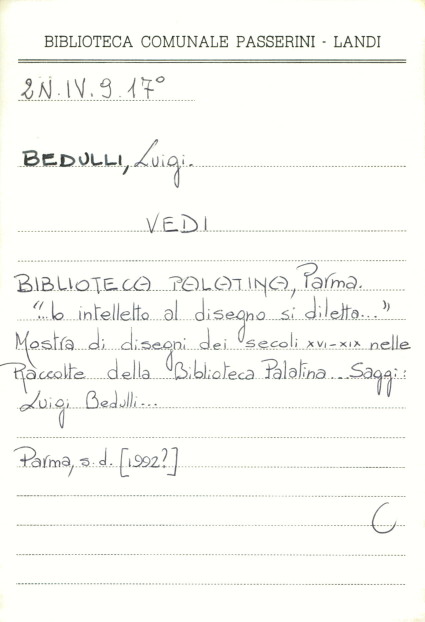 BIBLIOTECA COMUNALE PASSERINI - LANDI
2N.IV.9.17°
BEDULLI, Luigi.
VEDI
BIBLIOTECA PALATINA, Parma.
"...lo intelletto al disegno si diletta..."
Mostra di disegni dei secoli XVI-XIX nelle
Raccolte della Biblioteca Palatina... Saggi:
Luigi Bedulli...
Parma, s.d. [1992?]
C